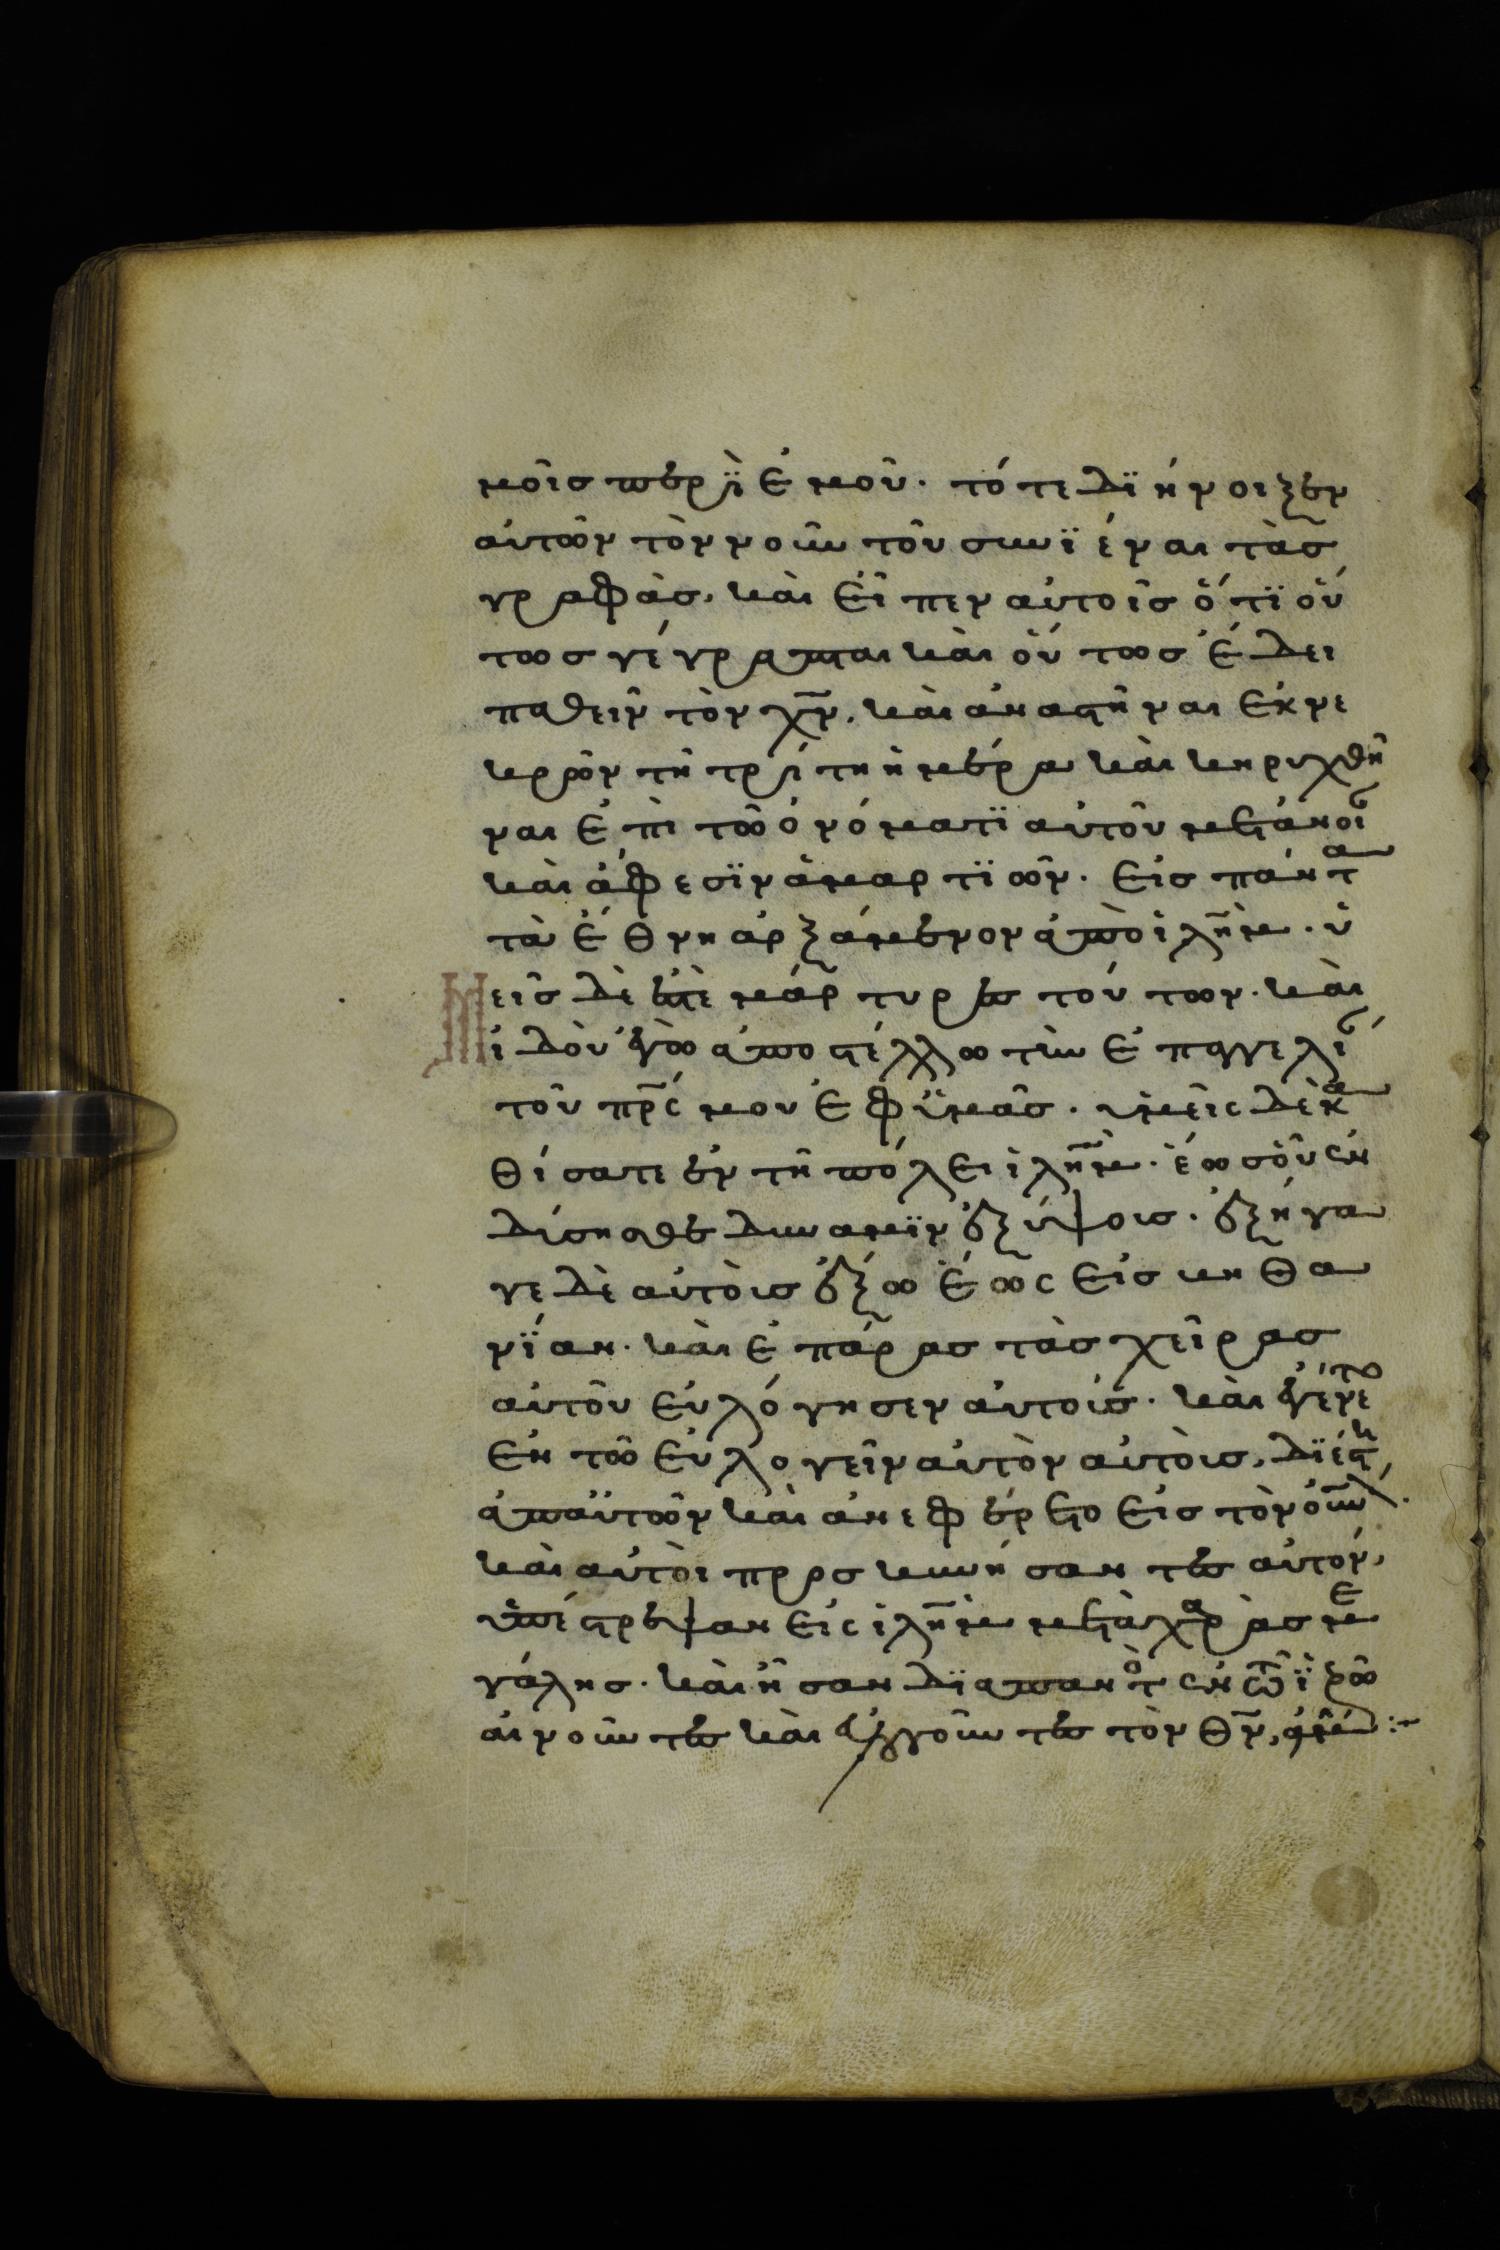 μοῖσ περῒ ἐμοῦ. τότε δϊήνοιξεν
αὐτῶν τὸν νοῦν τοῦ συνϊέναι τὰσ
γραφάσ, καὶ εἶπεν αὐτοῖσ ὅτϊ οὕ
τωσ γέγραπται καὶ οὕτωσ ἔδει
παθεῖν τὸν χ̅ν̅, καὶ ἀναστῆναι ἐκ νε
κρῶν τῆ τρίτη ἡμέρα καὶ κηρυχθῆ
ναι ἐπὶ τῶ ὀνόματϊ αὐτοῦ μετάνοι
καὶ ἄφεσϊν ἁμαρτϊῶν. εἰσ πάντα
τὰ ἔθνη ἀρξάμενον ἀπὸ ἰλ̅η̅μ. ὑ
Μεῖσ δὲ ἐστὲ μάρτυρεσ τούτων. καὶ
ἰδοὺ ἐγὼ ἀποστέλλω τὴν ἐπαγγελί
τοῦ π̅ρ̅ς μου ἐφ ὑμᾶσ. ὑμεῖς δὲ κα
θίσατε ἐν τῆ πόλει ἰλ̅η̅μ. ἕωσ οὗ ἐν
δύσησθε δύναμϊν ἐξ ὕψοισ. ἐξήγα
γε δὲ αὐτοὺσ ἔξω ἕως εἰσ βηθα
νΐαν. καὶ ἐπάρασ τὰσ χεῖρασ
αὐτοῦ εὐλόγησεν αὐτοὺσ. καὶ ἐγένετο
ἐν τῶ εὐλογεῖν αὐτὸν αὐτοὺσ, δϊέστη
ἀπ αὐτῶν καὶ ἀνεφέρετο εἰσ τὸν ο̅υ̅ν̅.
καὶ αὐτοὶ προσκυνήσαντεσ αὐτὸν,
ὑπέστρεψαν εἰς ἰλ̅η̅μ μετὰ χαρὰσ με
γάλησ. καὶ ἦσαν δϊαπαντὸσ ἐν τῶ ϊερῶ
αἰνοῦντεσ καὶ εὐλογοῦντεσ τὸν θ̅ν̅, ἀμήν :~